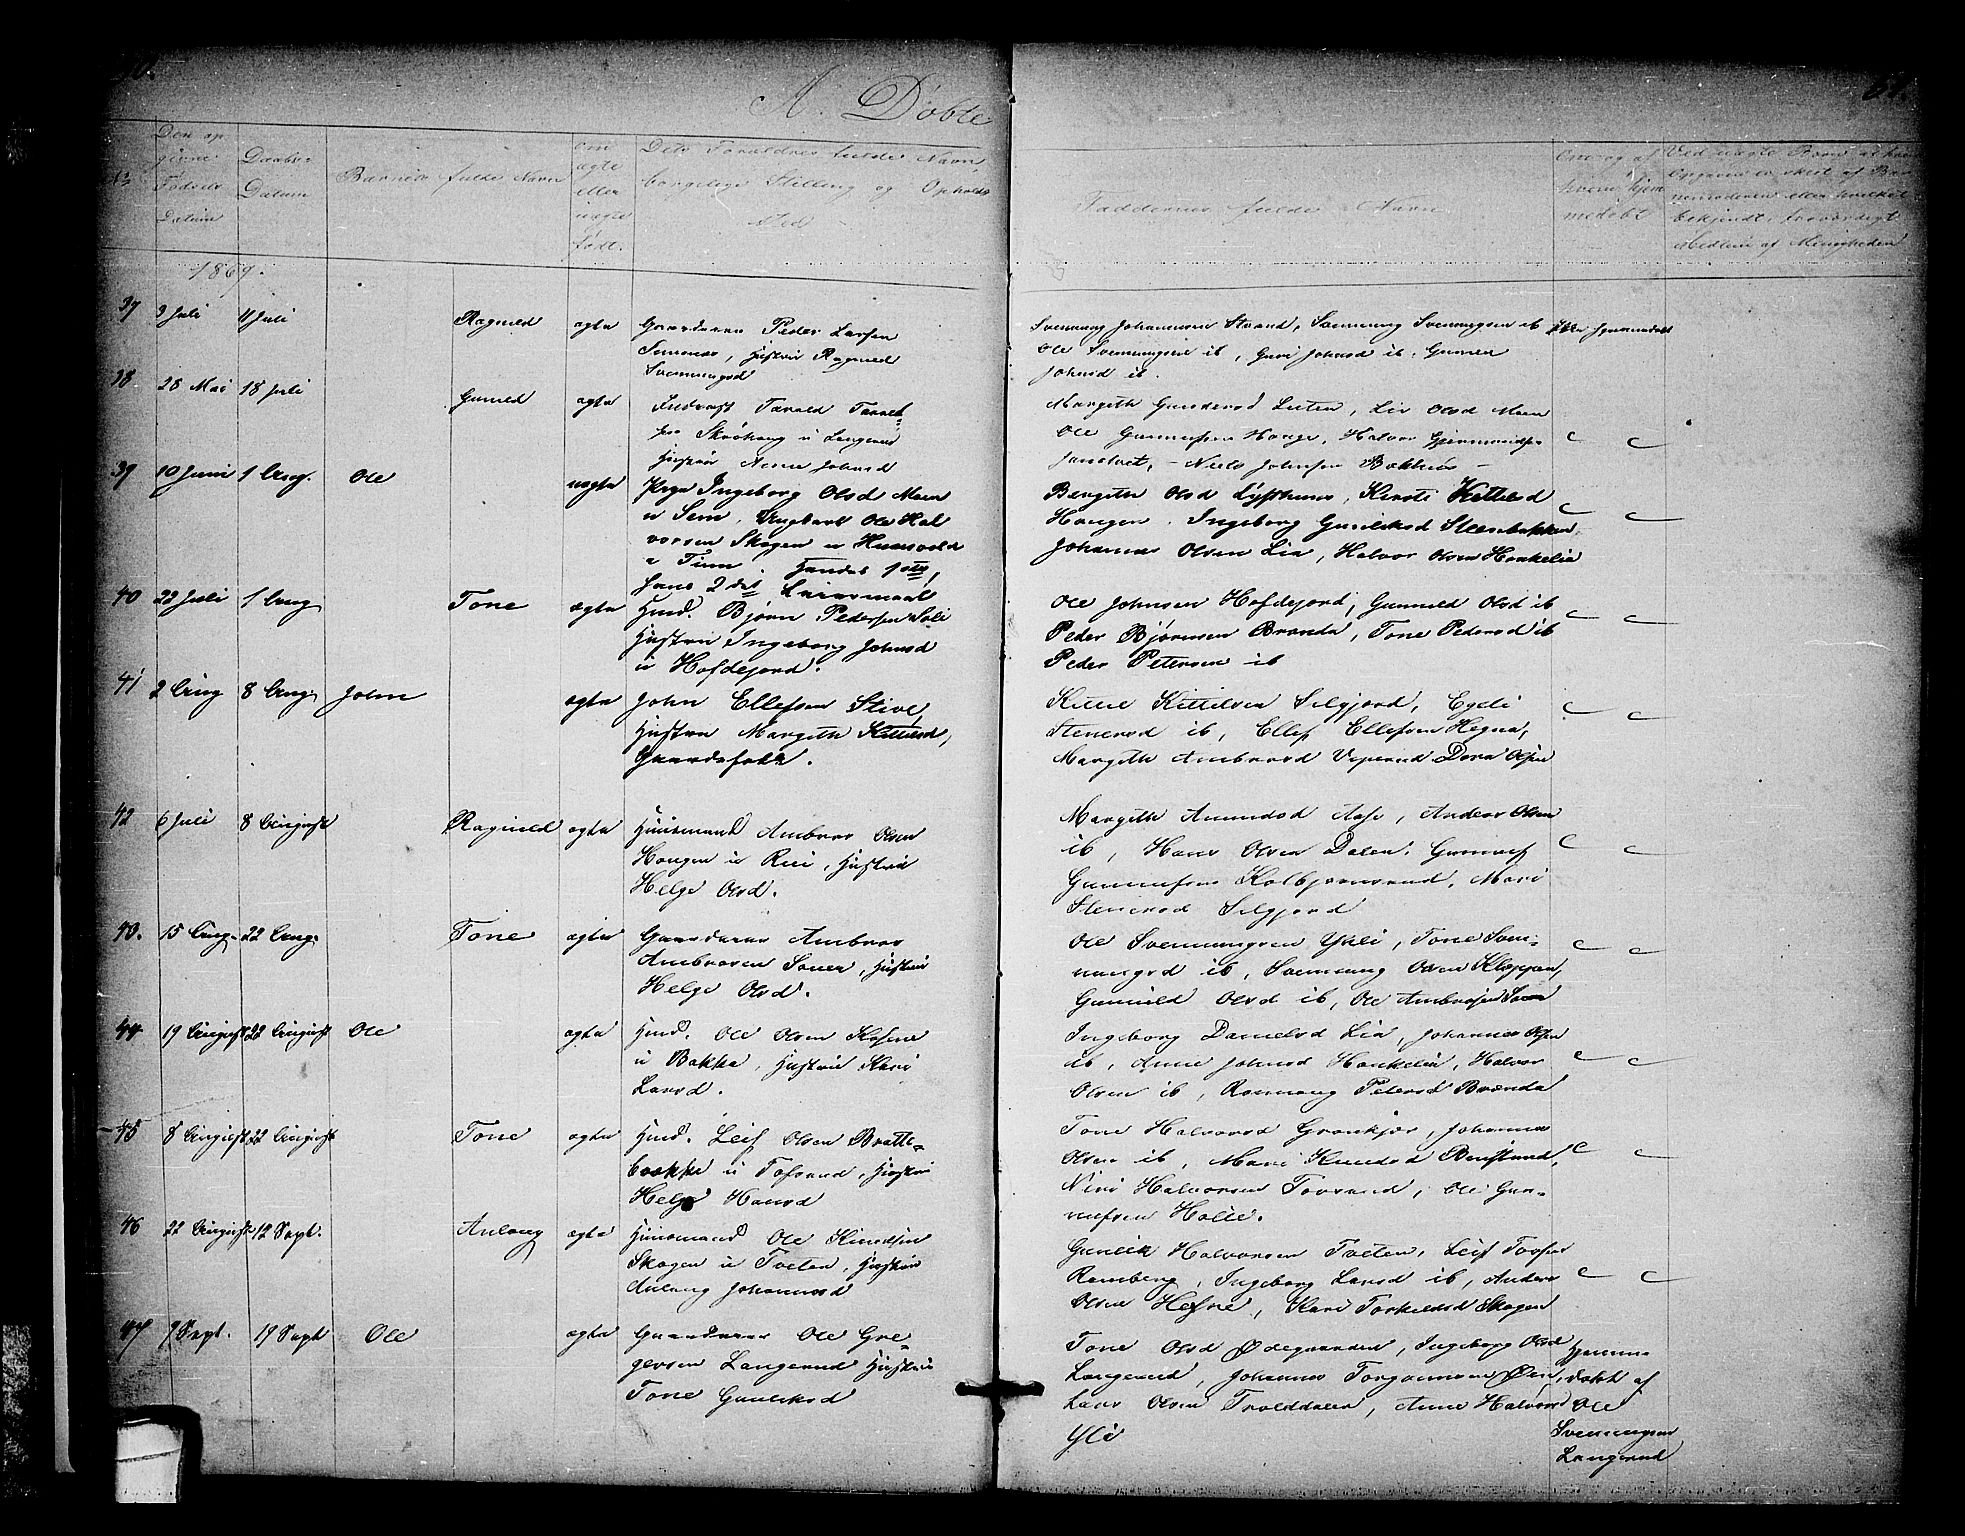 61.
A. Døbte
No
Den op-
givne
Fødsels
Datum
Daabs-
Datum
Barnets fulde Navn
Om
ægte
eller
uægte
født.
Dets Forældres fulde Navn,
borgelige Stilling og Opholds
Sted
Faddernes fulde Navn
Om og af
hvem hjem
medøbt
Ved uægte Børn
Opgaven er skeet af Bar
nemoderen eller hvilket
bekjendt, troværdigt
Medlem af Menigheden
1869.
37 3 Juli 11 Juli Ragnild ægte Gaardeier Peder Larsen
Hustru Ragnild
Svenningsd
Svennung Johannesen Strand, Svennung Svenningsen ib
Ole Svenningsen ib, Guri Johnsd ib, Gunild
Johnsd ib.
38 28 Mai 18 Juli Gunild ægte Inderst Tarald
Hustru Anne Johnsd
Margith Gundersd Luten, Liv Olsd Moen
Ole Gunnufsen Hauge, Halvor
Niels Johnsen Bakhus
39 10 Juni 1 Aug. Ole uægte Pige Ingeborg Olsd Moen
u Sem, Ungkarl Ole Hal
vorsen Skogen u
a Tinn Hendes 1ste,
hans 2det Leiermaal
Bergith Olsd Lysthus, Kirsti Kittilsd
Haugen, Ingeborg Gunliksd Steenbakken
Johannes Olsen Lia, Halvor Olsen Haukelia
40 22 Juli 1 Aug Tone ægte Husd. Bjørn Pedersen Soli
Hustru Ingeborg Johnsd
u Hofdejord.
Ole Johnsen Hofdejord, Gunnild Olsd ib
Peder Bjørnsen Brænda, Tone Pedersd ib
Peder Petersen ib
41 2 Aug 8 Aug John ægte John Ellefsen Stive,
Hustru Margith Kittilsd,
Gaardsfolk.
Kittil Kittilsen Selgjord, Egeli
Stenersd ib, Ellef Ellefsen Hegna,
Margith Ambrosd Vaperud Dora Olsen
42 6 Juli 8 August Ragnild ægte Huusmand Ambros Olsen
Haugen u Rui, Hustru
Helge Olsd.
Margith Amundsd Aase, Anders Olsen
ib, Hans Olsen Dalen, Gunnuf
Gunnufsen Kolbjørnsrud, Mari
Stenersd Selgjord
43. 15 Aug. 22 Aug. Tone ægte Gaardeier Ambros
Ambrosen Soner, Hustru
Helge Olsd.
Ole Svennungsen Ykli, Tone Sven-
nungsd ib, Svennung Olsen Kleppen,
Gunild Olsd ib, Ole Ambrosen Soner
44 19 August 22 August Ole ægte Husd. Ole Olsen Kosene
u Bakka, Hustru Kari
Larsd.
Ingeborg Danielsd Lia, Johannes Olsen
ib, Anne Johnsd Haukelia, Halvor
Olsen ib, Rønnaug Petersd Brænda
45 8 August 22 August Tone ægte Husd. Leif Olsen Bratte-
bække u Tofsrud, Hustru
Helge Hansd
Tone Halvorsd Grønkjær, Johannes
Olsen ib, Mari Knudsd Bergstrand,
Niri Halvorsen Tovsrud, Ole Gun-
nufsen Holte.
46 22 August 12 Sept. Anlaug ægte Huusmand Ole Knudsen
Skogen u Tveten, Hustru
Anlaug Johannesd
Gunlek Halvorsen Tveten, Leif Tovsen
Ramberg, Ingeborg Larsd ib, Anders
Olsen Hefne, Kari Torkildsd Skogen
47 9 Sept. 19 Sept Ole ægte Gaardeier Ole Gre-
gersen Langerud Hustru
Tone Gunleksd
Tone Olsd Ødegaarden, Ingeborg Olsd
Langerud, Johannes Torgersen Øen,
Lars Olsen Trolddalen, Anne Halvorsd
Yli
Hjemme-
døbt af
Ole
Svenningsen
Langerud